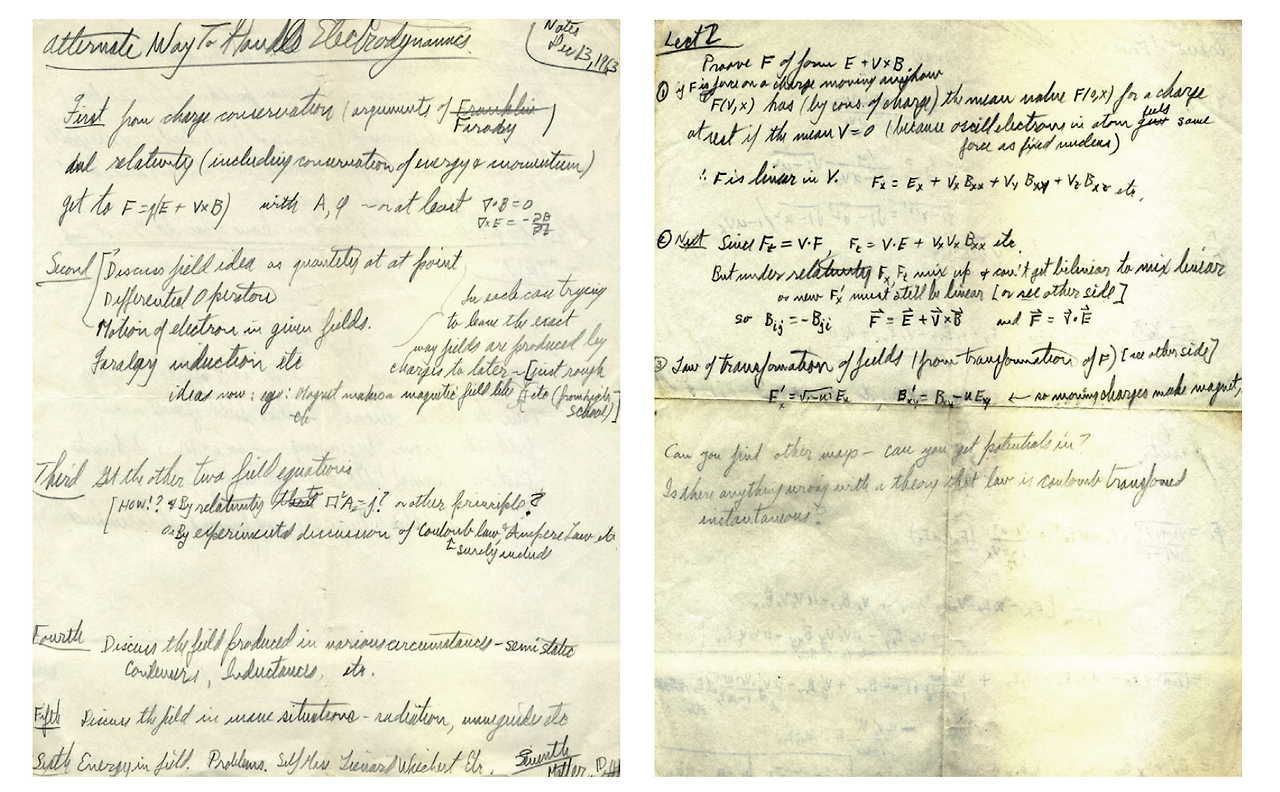 Alternate Way To Handle Electrodynamics.
Notes
Dec 13, 1963
First from charge conservation (arguments of Franklin
Farady)
and relativity (including conservation of energy & momentum)
get to F=q(E+V×B) with A, φ – or at least ∇·B=0
∇×E = -∂B/∂t
Second Discuss field idea as quantities at at point
Differential Operators
Motion of electron in given fields.
Faraday induction etc
In each case trying
to leave the exact
way fields are produced by
charges to later – [just rough
ideas now: eg: Magnet makes a magnetic field like etc (from high
school)]
Third Get the other two field equations
[HOW!? By relativity to □²A=j? or other principle?
or By experiments discussion of Coulomb law, & Ampere Law, etc
surely include
Fourth Discuss the field produced in various circumstances – semi static
Condensers, Inductances, etc.
Fifth Discuss the field in more situations – radiation, waveguide etc
Sixth Energy in field. Problems. Self Mass. Lienard Wiechert Etc.
Seventh
Matter.
Lect 2
Proove F of form E + V×B.
① if F is force on a charge moving anyhow
F(V,x) has (by cons. of charge) the mean value F(0,x) for a charge
at rest if the mean V=0 (because oscill electrons in atom gets same
force as fixed nucleus)
∴ F is linear in V. Fx = Ex + Vx Bxx + Vy Bxy + Vz Bxz etc,
② Next Since Ft = V·F, Ft = V·E + VxVx Bxx etc.
But under relativity Fx, Ft mix up & can't get bilinear to mix linear
as new Fx' must still be linear [or see other side]
so Bij = -Bji F = E + V×B and F = V·E
③ Law of transformation of fields (from transformation of F) [see other side]
Ex' = √1-u² Ex , B'xy = Bxy - uExy ← so moving charges make magnet,
Can you find other ways – can you get potentials in?
Is there anything wrong with a theory that law is coulomb transfomed
instantaneous?